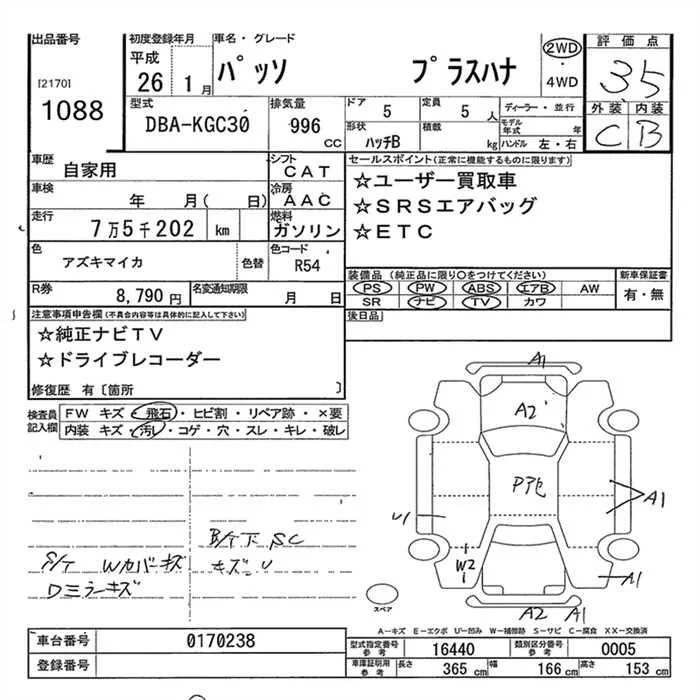 出品番号
[2170]
1088
初度登録年月
平成
26 1月
車名・グレード
パッソ プラスハナ
2WD
・
4WD
評価点
35
外装 内装
C B
型式
DBA-KGC30
排気量
996
CC
ドア
5
定員
5人
形状
ハッチB
積載
kg
ディーラー・並行
モデル年式 年
ハンドル 左・右
車歴
自家用
シフト
CAT
車検
年 月( 日)
冷房
AAC
走行
7万5千202 km
燃料
ガソリン
色
アズキマイカ
色替
色コード
R54
R券
8,790円
名変通知期限
月 日
セールスポイント(正常に機能するものに限ります)
☆ユーザー買取車
☆SRSエアバッグ
☆ETC
装備品(純正品に限り○をつけてください)
PS PW ABS エアB AW
SR ナビ TV カワ
新車保証書
有・無
後日品
注意事項申告欄(不具合内容等は具体的に記入して下さい)
☆純正ナビTV
☆ドライブレコーダー
修復歴 有〔箇所 〕
検査員記入欄
FW キズ・飛石・ヒビ割・リペア跡・×要
内装 キズ・汚レ・コゲ・穴・スレ・キレ・破レ
B/T下 SC
キズ U
S/T Wカバーキズ
Dミラーキズ
A1
A2
Pアセ
A1
U1
W2
A1
A2 A1
スペア
A―キズ E―エクボ U―凹み W―補修跡 S―サビ C―腐食 XX―交換済
車台番号
0170238
登録番号
型式指定番号
参考
16440
類別区分番号
参考
0005
車庫証明用
参考
長さ 365 cm 幅 166 cm 高さ 153 cm